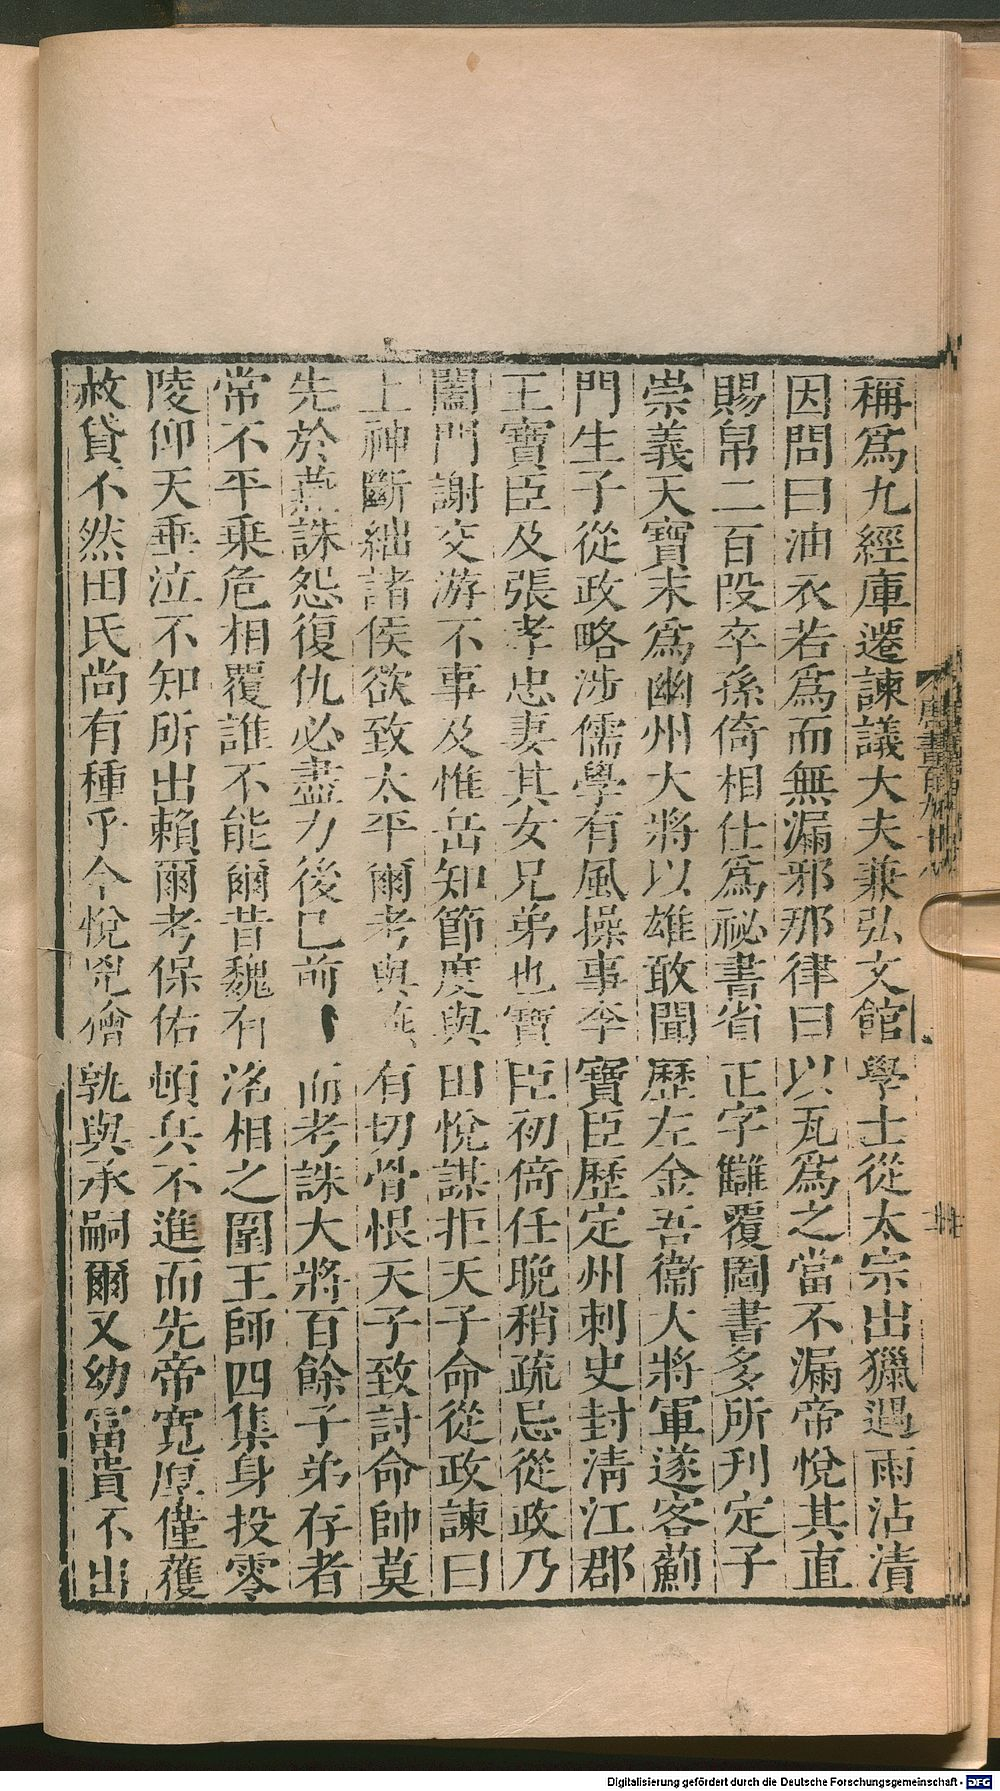 稱爲九經庫遷諫議大夫兼弘文館學士從太宗出獵遇雨沾漬
因問曰油衣若爲而無漏邪那律曰以瓦爲之當不漏帝悅其直
賜帛二百段卒孫倚相仕爲祕書省正字讎覆圖書多所刊定子
崇義天寶末爲幽州大將以雄敢聞歷左金吾衞大將軍遂客薊
門生子從政略涉儒學有風操事李寶臣歷定州刺史封清江郡
王寶臣及張孝忠妻其女兄弟也寶臣初倚任晚稍疏忌從政乃
闔門謝交游不事及惟岳知節度與田悅謀拒天子命從政諫曰
上神斷絀諸侯欲致太平爾考與燕有切骨恨天子致討命帥莫
先於燕誅怨復仇必盡力後已前而考誅大將百餘子弟存者
常不平乗危相覆誰不能爾昔魏有洺相之圍王師四集身投零
陵仰天垂泣不知所出賴爾考保佑頓兵不進而先帝寬厚僅獲
赦貸不然田氏尚有種乎今悅兇獪孰與承嗣爾又幼富貴不出
Digitalisierung gefördert durch die Deutsche Forschungsgemeinschaft - DFG